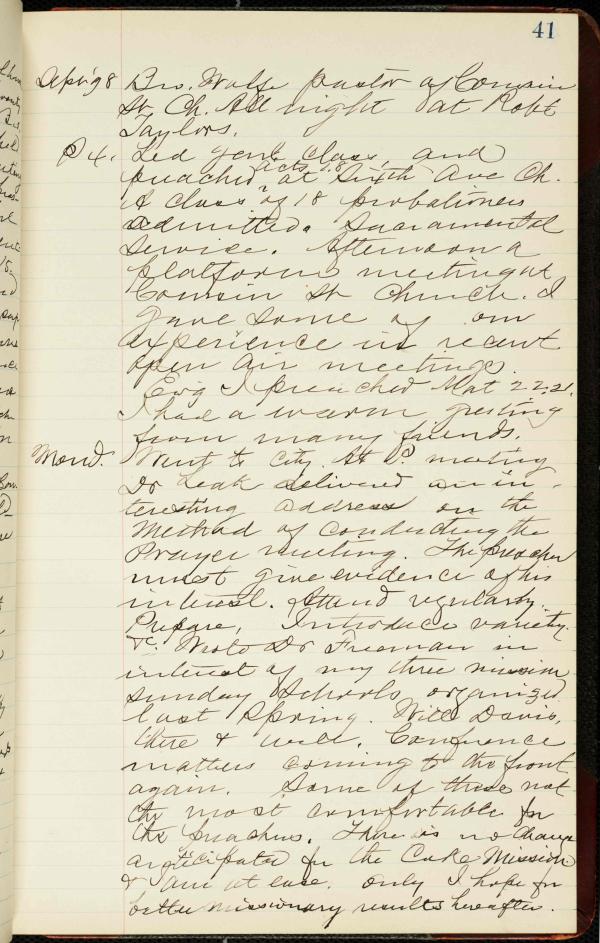 41
Bro. Wolfe pastor of Cousin
St Ch. All night at Robt
Taylors.
S 4. Led gen'l class, and
preached Acts at Sixth Ave Ch.
A class of 18 probationers
admitted. Sacramental
service. Afternoon a
platform meeting at
Cousin St Church. I
gave some of our
experience in recent
open air meetings.
Ev'g I preached Mat 22,21.
I had a warm greeting
from many friends.
Mond. Went to City. At P. meeting
Dr Leak delivered an in-
teresting address on the
Method of conducting the
Prayer meeting. The preacher
must give evidence of his
interest. Attend regularly.
Prepare, Introduce variety.
&c. Wrote Dr Freeman in
interest of my three mission
Sunday Schools organized
last Spring. Will Davis,
there & well. Conference
matters coming to the front
again. Some of these not
the most comfortable for
the preachers. There is no change
anticipated for the Cake Mission
& I am at ease. Only I hope for
better missionary results hereafter.